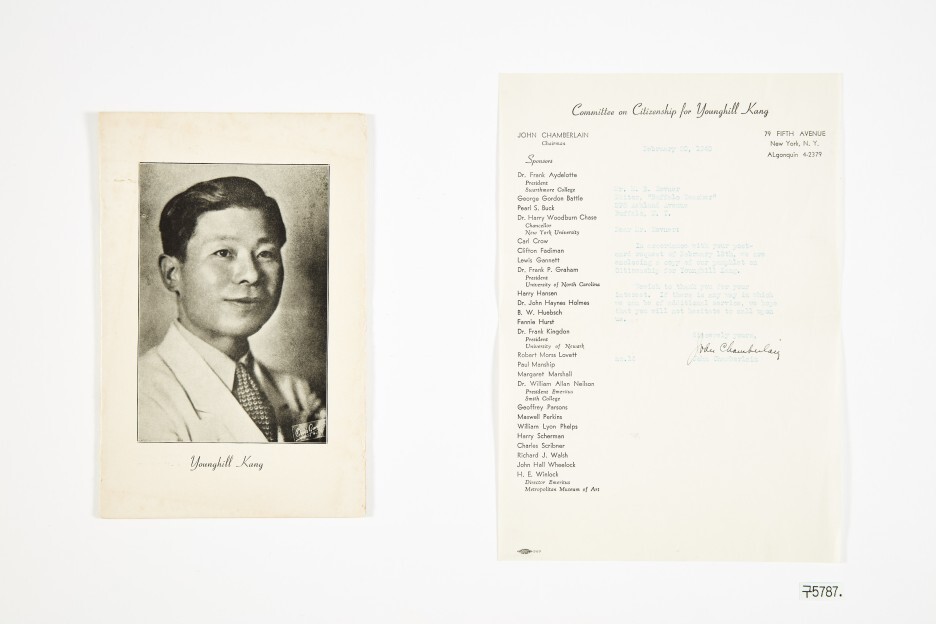 Younghill Kang
Committee on Citizenship for Younghill Kang
JOHN CHAMBERLAIN
Chairman
79 FIFTH AVENUE
New York, N. Y.
ALgonquin 4-2379
Sponsors
Dr. Frank Aydelotte
President
Swarthmore College
George Gordon Battle
Pearl S. Buck
Dr. Harry Woodburn Chase
Chancellor
New York University
Carl Crow
Clifton Fadiman
Lewis Gannett
Dr. Frank P. Graham
President
University of North Carolina
Harry Hansen
Dr. John Haynes Holmes
B. W. Huebsch
Fannie Hurst
Dr. Frank Kingdon
President
University of Newark
Robert Morss Lovett
Paul Manship
Margaret Marshall
Dr. William Allan Neilson
President Emeritus
Smith College
Geoffrey Parsons
Maxwell Perkins
William Lyon Phelps
Harry Scherman
Charles Scribner
Richard J. Walsh
John Hall Wheelock
H. E. Winlock
Director Emeritus
Metropolitan Museum of Art
February
Editor,
Buffalo, N. Y.
Dear Mr.
In accordance with your
request of February we are
enclosing a copy of our pamphlet on
Citizenship for Younghill Kang.
to thank you for your
interest. If there is any way in which
we can be of additional service, we hope
that you will not hesitate to call upon
us.
Sincerely yours,
John Chamberlain
John Chamberlain
구5787.